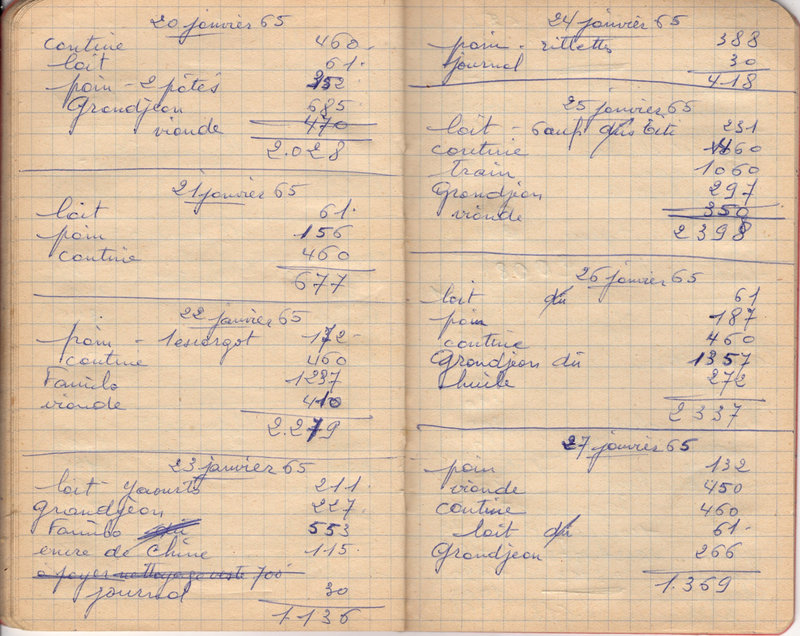 20 janvier 65
cantine 460
lait 61
pain - 2 pâtés 352
Grandjean 685
viande 470
2.028
21 janvier 65
lait 61
pain 156
cantine 460
677
22 janvier 65
pain - 1 escargot 172
cantine 460
Familo 1237
viande 410
2.279
23 janvier 65
lait - yaourts 211
grandjean 227
Familo dû 553
encre de Chine 115
à payer nettoyage veste 700
journal 30
1.136
24 janvier 65
pain - rillettes 388
journal 30
418
25 janvier 65
lait - 6 oeufs 231
cantine 460
train 1060
Grandjean 297
viande 350
2398
26 janvier 65
lait dû 61
pain 187
cantine 460
Grandjean dû 1357
huile 272
2337
27 janvier 65
pain 132
viande 450
cantine 460
lait dû 61
Grandjean 266
1.369